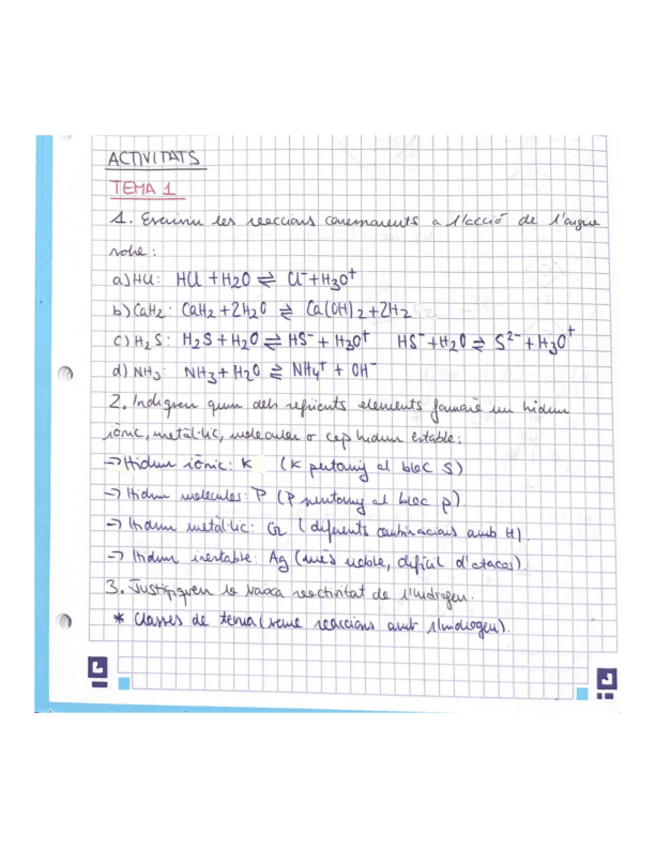 ACTIVITATS
TEMA 1
1. Escriviu les reaccions corresponents a l'acció de l'aigua
sobre:
a) HCl: HCl + H2O ⇌ Cl⁻ + H3O⁺
b) CaH2: CaH2 + 2H2O ⇌ Ca(OH)2 + 2H2
c) H2S: H2S + H2O ⇌ HS⁻ + H3O⁺ HS⁻ + H2O ⇌ S²⁻ + H3O⁺
d) NH3: NH3 + H2O ⇌ NH4⁺ + OH⁻
2. Indiqueu quin dels següents elements formarà un hidrur
iònic, metàl·lic, molecular o cap hidrur estable:
→ Hidrur iònic: K (K pertany al bloc S)
→ Hidrur molecular: P (P pertany al bloc p).
→ Hidrur metàl·lic: Cr (diferents combinacions amb H).
→ Hidrur inestable: Ag (més noble, difícil d'atacar).
3. Justifiqueu la baixa reactivitat de l'hidrogen.
* Classes de teoria ( reaccions amb l'hidrogen).